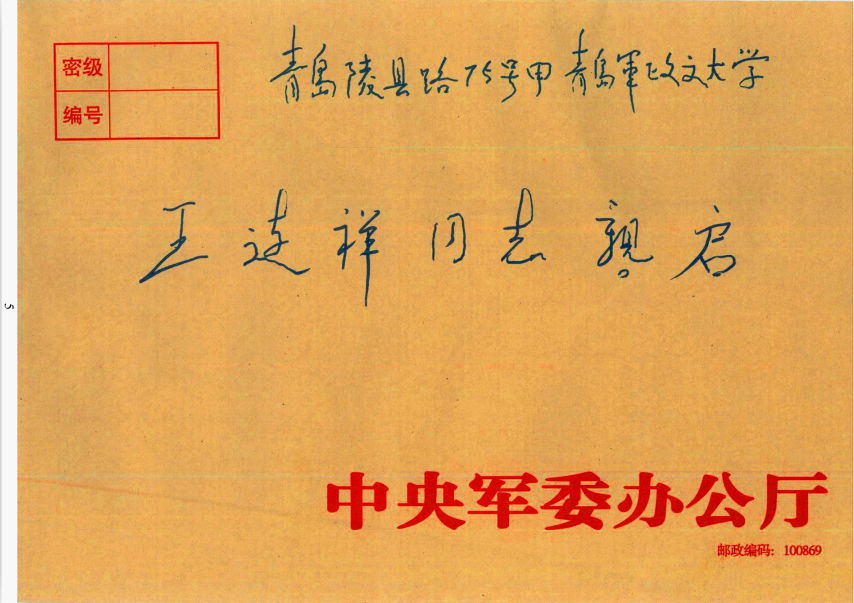 密级
编号
青島陵县路75号甲 青島軍政文大学
王连祥同志親启
中央军委办公厅
邮政编码：100869
5